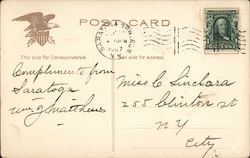 POST CARD
SARATOGA SPR
1907
This side for Correspondence.
This side for Address.
Compliments from
Saratoga
Wm J Matthews
Miss C Sinchara
255 Clinton St
N Y
City